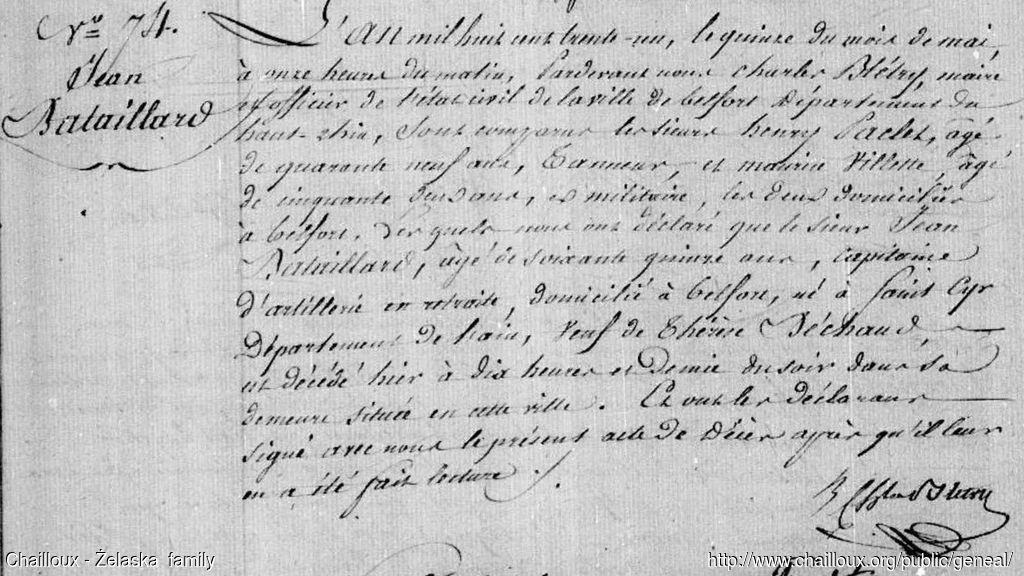 N.º 74.
Jean
Bataillard
L'An mil huit cent trente-un, le quinze du mois de mai,
à onze heures du matin, Pardevant nous Charles Blétry, maire
et officier de l'état civil de la ville de belfort Département du
haut-rhin, sont comparus les sieurs henry Paclet, âgé
de quarante neuf ans, Tanneur, et maurice Villette, âgé
de cinquante deux ans, ex militaire, les deux domiciliés
à belfort. Les quels nous ont déclaré que le sieur Jean
Bataillard, âgé de soixante quinze ans, capitaine
d'artillerie en retraite, domicilié à belfort, né à saint Cyr
Département de l'ain, veuf de Thérèse Déchaud,
est décédé hier à dix heures et Demie du soir dans sa
demeure située en cette ville. Et ont les déclarans
signé avec nous le présent acte de Décès après qu'il leur
en a été fait lecture ./.
Chailloux - Želaska family
http://www.chailloux.org/public/geneal/